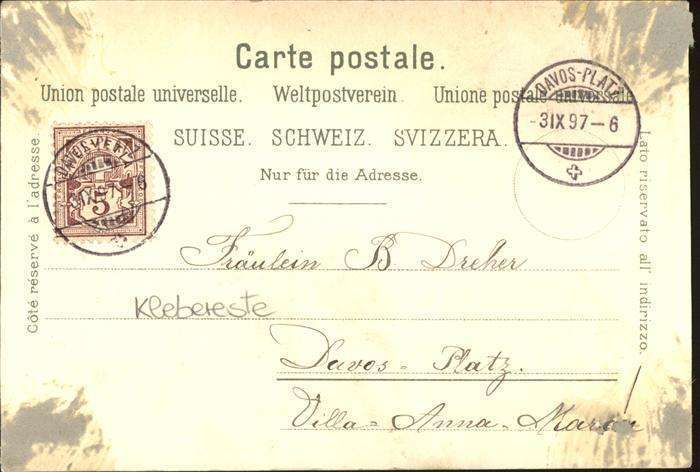 Carte postale.
Union postale universelle. Weltpostverein. Unione postale universale
SUISSE. SCHWEIZ. SVIZZERA.
Nur für die Adresse.
Côté réservé à l'adresse.
Lato riservato all' indirizzo.
DAVOS-PLATZ
-3 IX 97-6
5
Fräulein B Dreher
Klebereste
Davos-Platz.
Villa-Anna-Maria